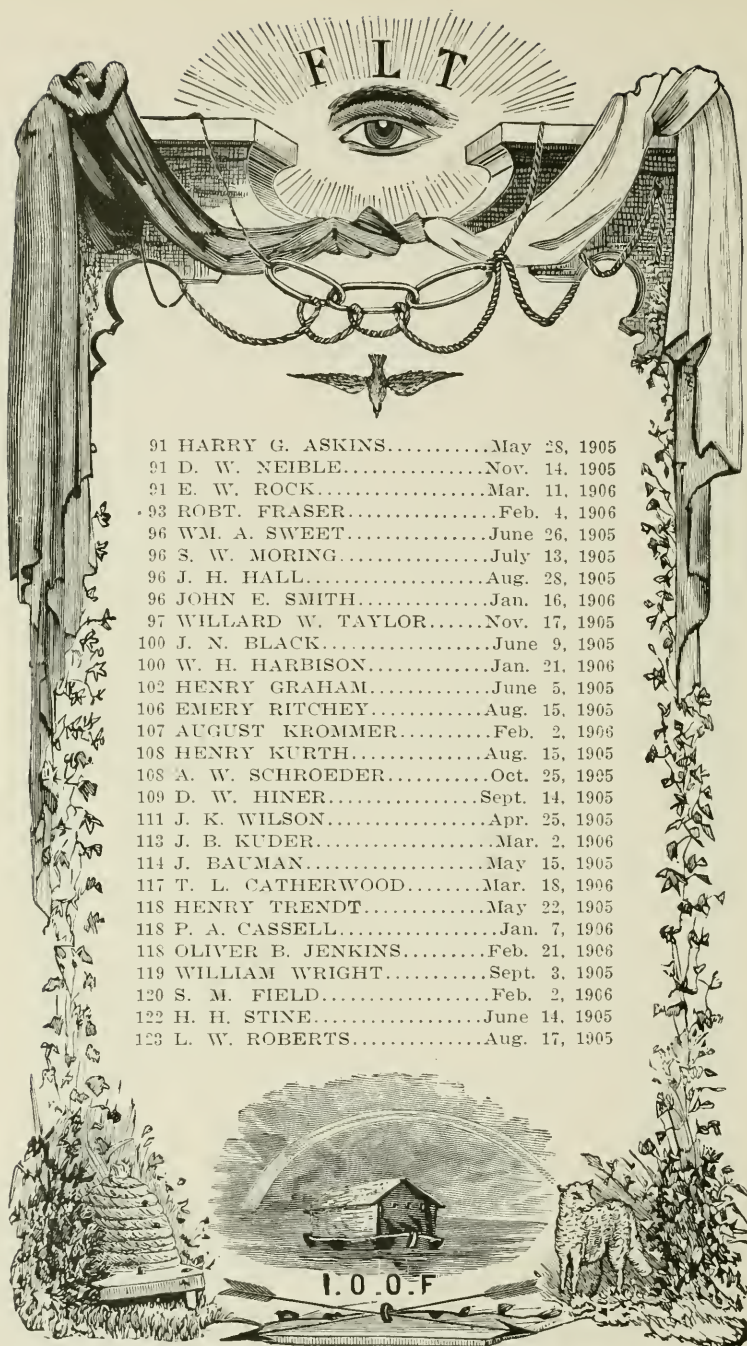 F L T
91 HARRY G. ASKINS...........May 28, 1905
91 D. W. NEIBLE...............Nov. 14, 1905
91 E. W. ROCK..................Mar. 11, 1906
93 ROBT. FRASER................Feb. 4, 1906
96 WM. A. SWEET...............June 26, 1905
96 S. W. MORING................July 13, 1905
96 J. H. HALL...................Aug. 28, 1905
96 JOHN E. SMITH..............Jan. 16, 1906
97 WILLARD W. TAYLOR......Nov. 17, 1905
100 J. N. BLACK..................June 9, 1905
100 W. H. HARBISON............Jan. 21, 1906
102 HENRY GRAHAM............June 5, 1905
106 EMERY RITCHEY............Aug. 15, 1905
107 AUGUST KROMMER..........Feb. 2, 1906
108 HENRY KURTH..............Aug. 15, 1905
108 A. W. SCHROEDER...........Oct. 25, 1905
109 D. W. HINER................Sept. 14, 1905
111 J. K. WILSON................Apr. 25, 1905
113 J. B. KUDER..................Mar. 2, 1906
114 J. BAUMAN...................May 15, 1905
117 T. L. CATHERWOOD........Mar. 18, 1906
118 HENRY TRENDT............May 22, 1905
118 P. A. CASSELL................Jan. 7, 1906
118 OLIVER B. JENKINS........Feb. 21, 1906
119 WILLIAM WRIGHT..........Sept. 3, 1905
120 S. M. FIELD.................Feb. 2, 1906
122 H. H. STINE.................June 14, 1905
123 L. W. ROBERTS.............Aug. 17, 1905
I.O.O.F